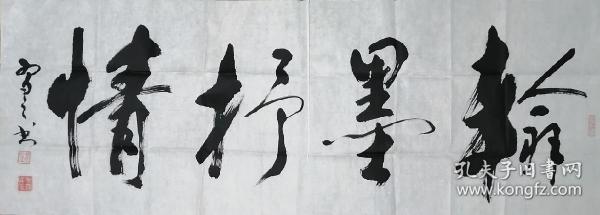 翰墨抒情
孔夫子旧书网
www.kongfz.com